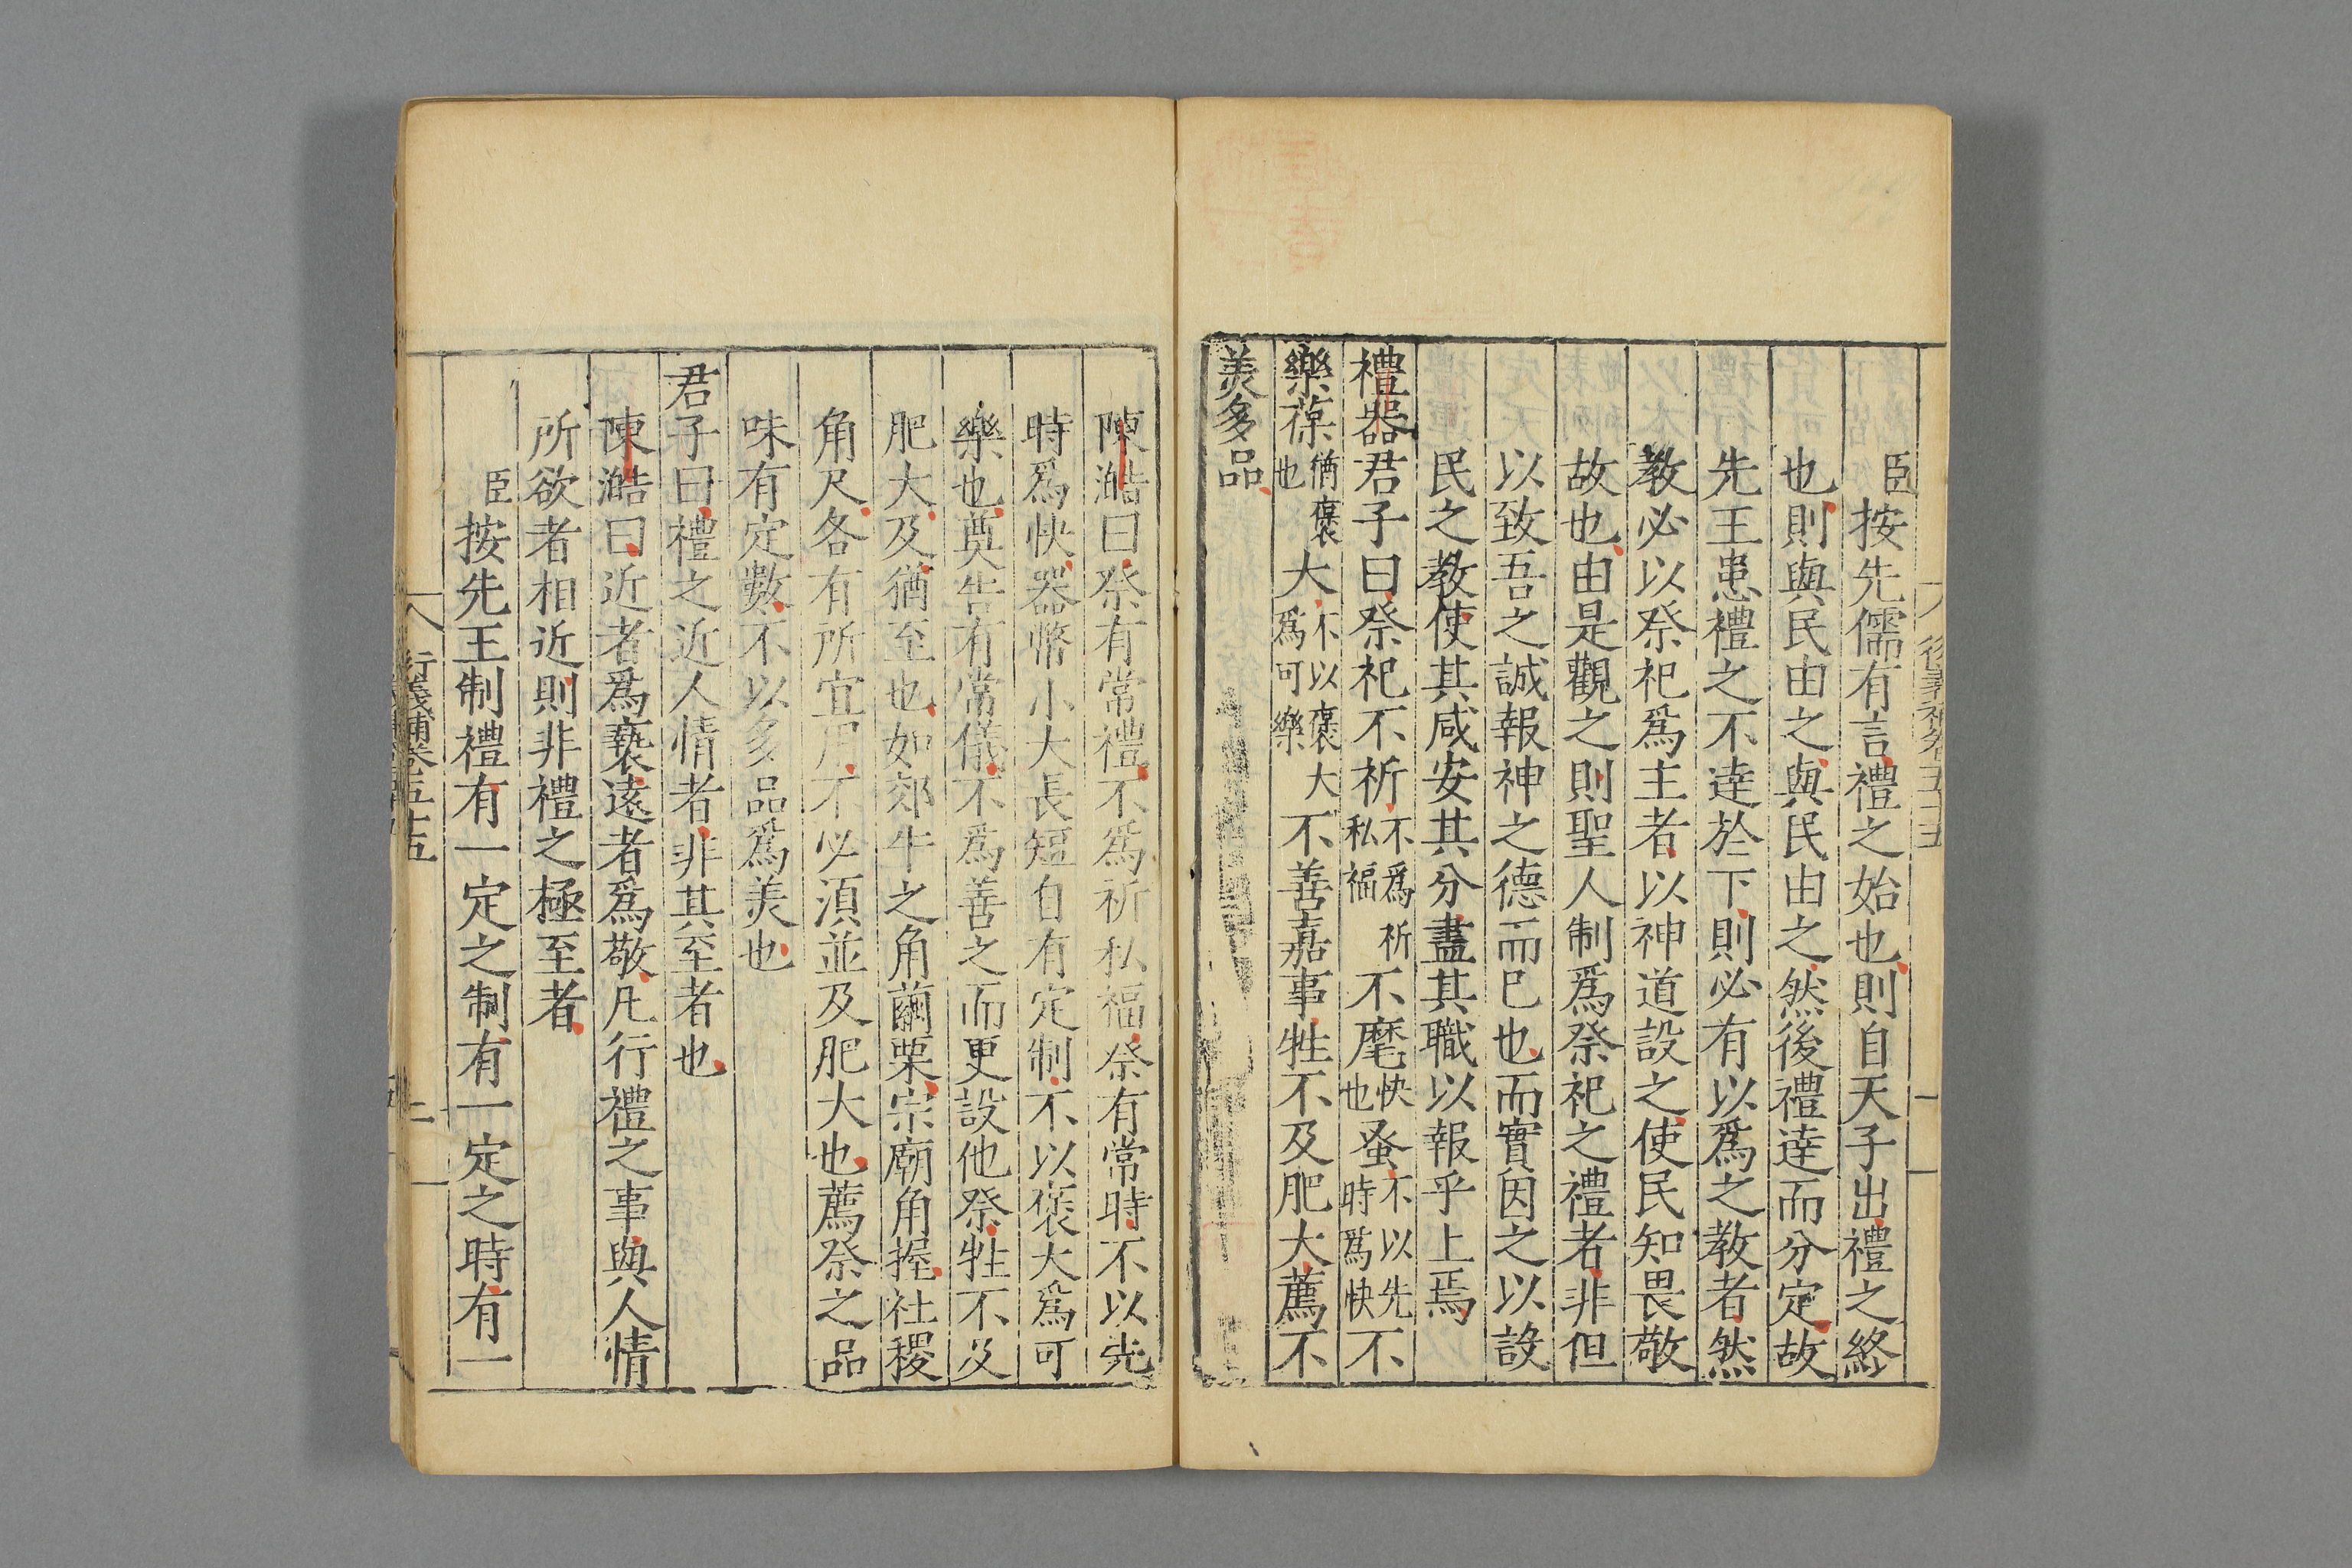 臣按先儒有言禮之始也則自天子出禮之終
也則與民由之與民由之然後禮達而分定故
先王患禮之不達於下則必有以爲之教者然
教必以祭祀爲主者以神道設之使民知畏敬
故也由是觀之則聖人制爲祭祀之禮者非但
以致吾之誠報神之德而已也而實因之以設
民之教使其咸安其分盡其職以報乎上焉
禮器君子曰祭祀不祈不爲祈私福不麾快也蚤不以先時爲快不
樂葆猶褒也大不以褒大爲可樂不善嘉事牲不及肥大薦不
美多品
陳澔曰祭有常禮不爲祈私福祭有常時不以先
時爲快器幣小大長短自有定制不以褒大爲可
樂也奠告有常儀不爲善之而更設他祭牲不及
肥大及猶至也如郊牛之角繭栗宗廟角握社稷
角尺各有所宜用不必須並及肥大也薦祭之品
味有定數不以多品爲美也
君子曰禮之近人情者非其至者也
陳澔曰近者爲褻遠者爲敬凡行禮之事與人情
所欲者相近則非禮之極至者
臣按先王制禮有一定之制有一定之時有一
衍義補卷五十五